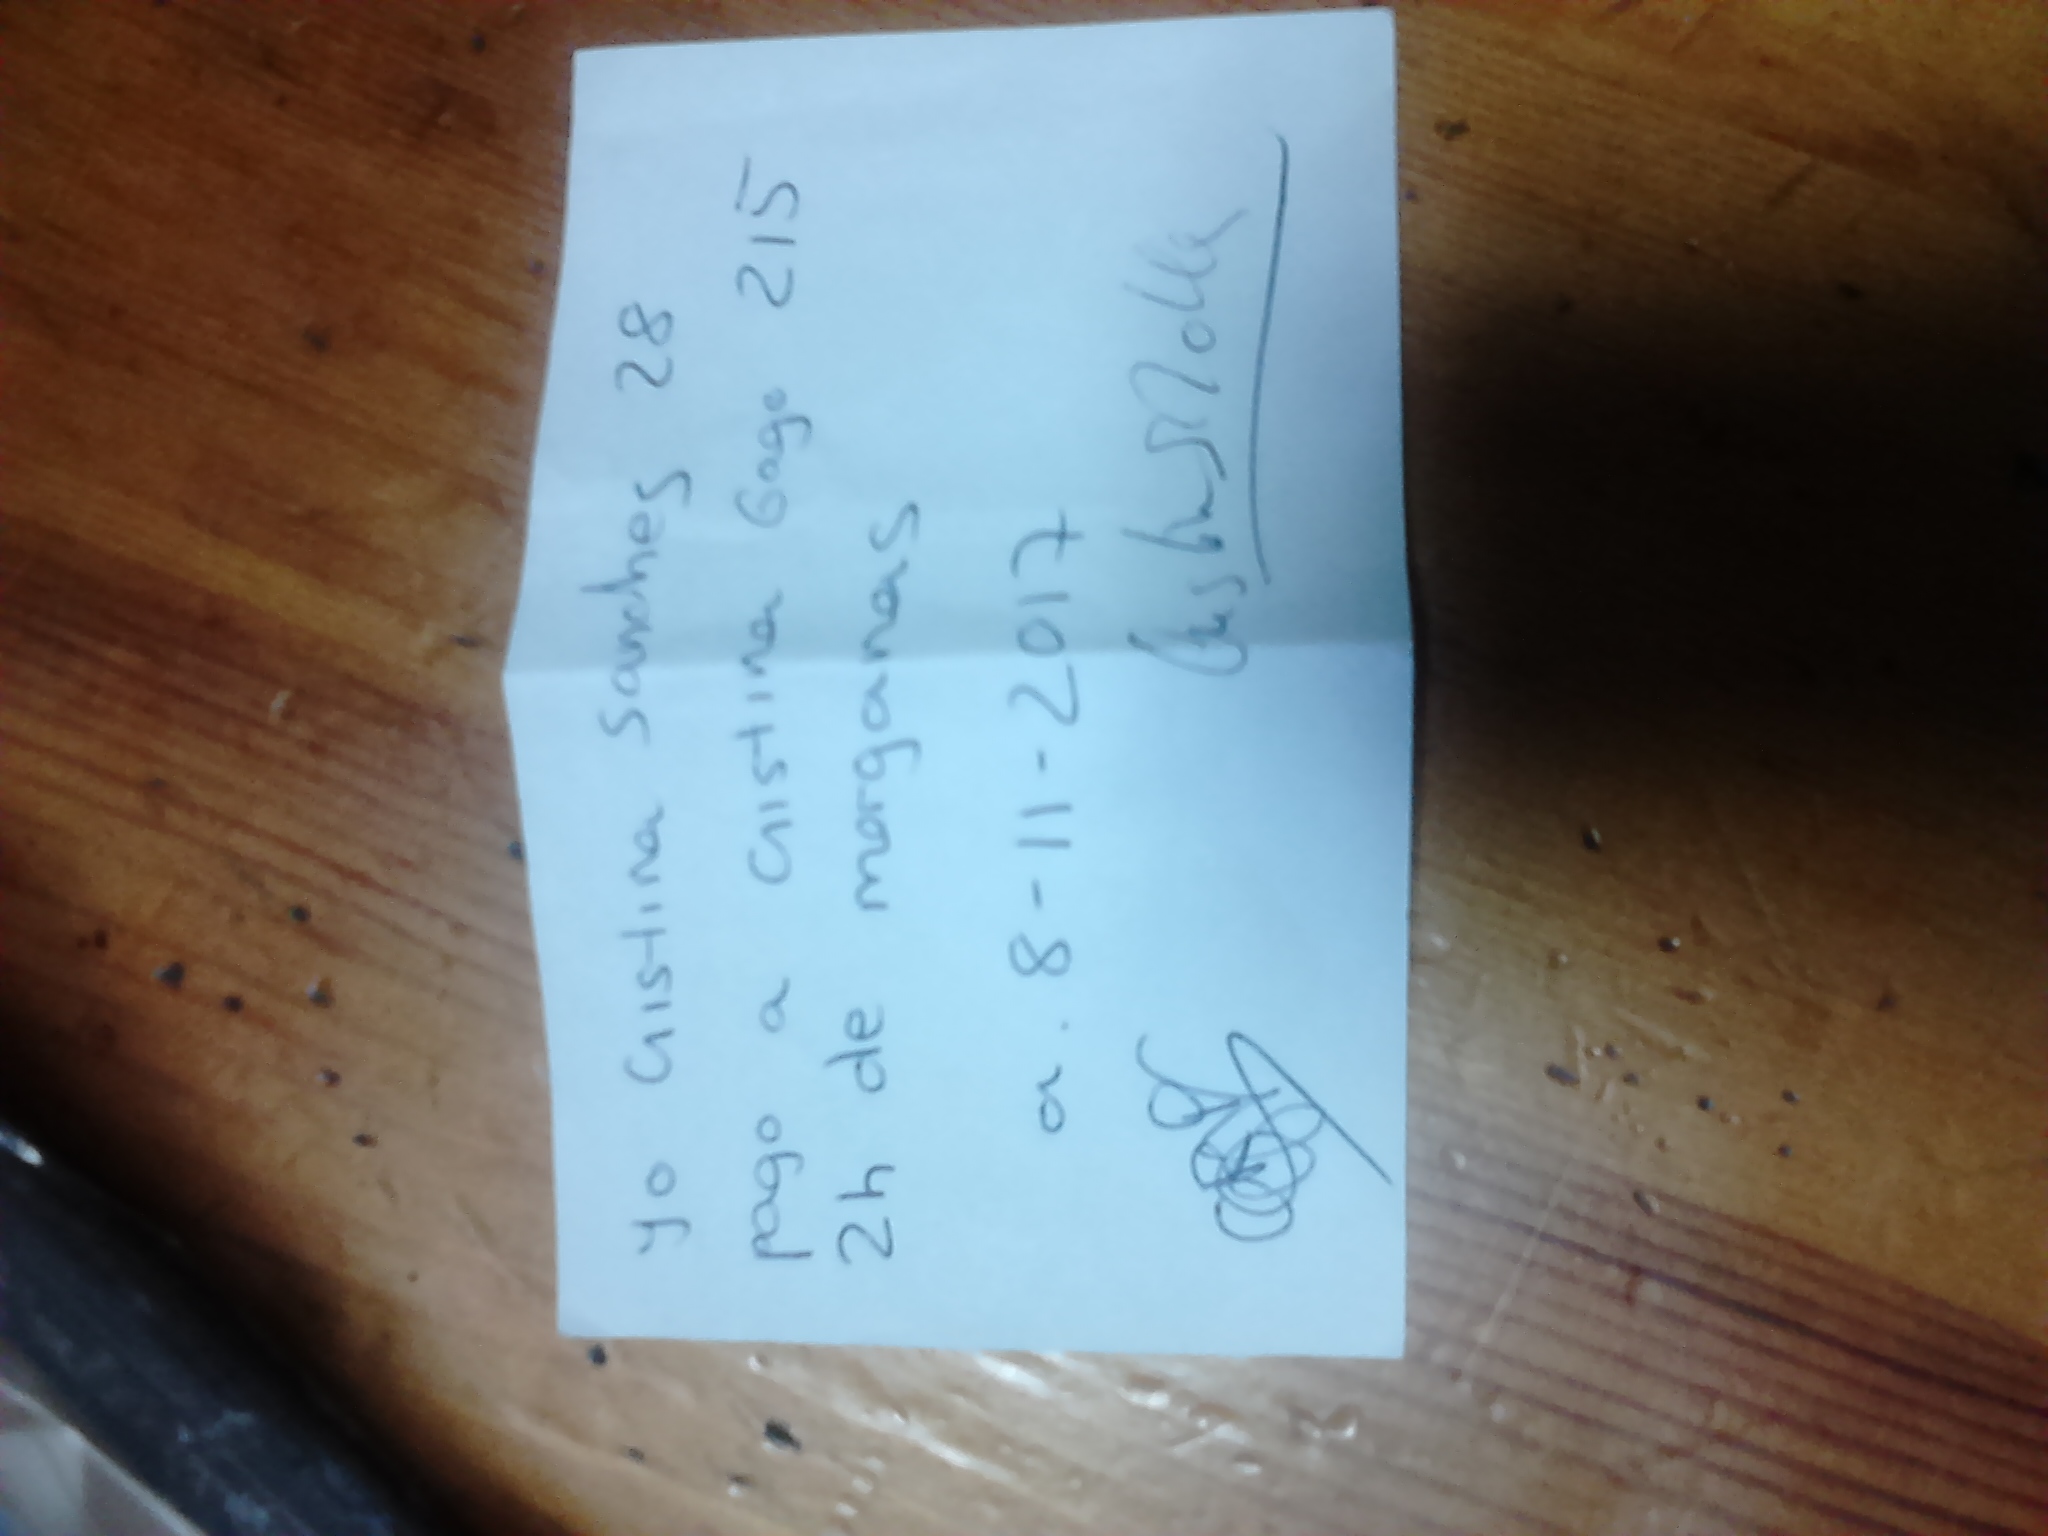 yo Cristina Sanches 28
pago a Cristina Gago 215
2h de morganas
a. 8-11-2017